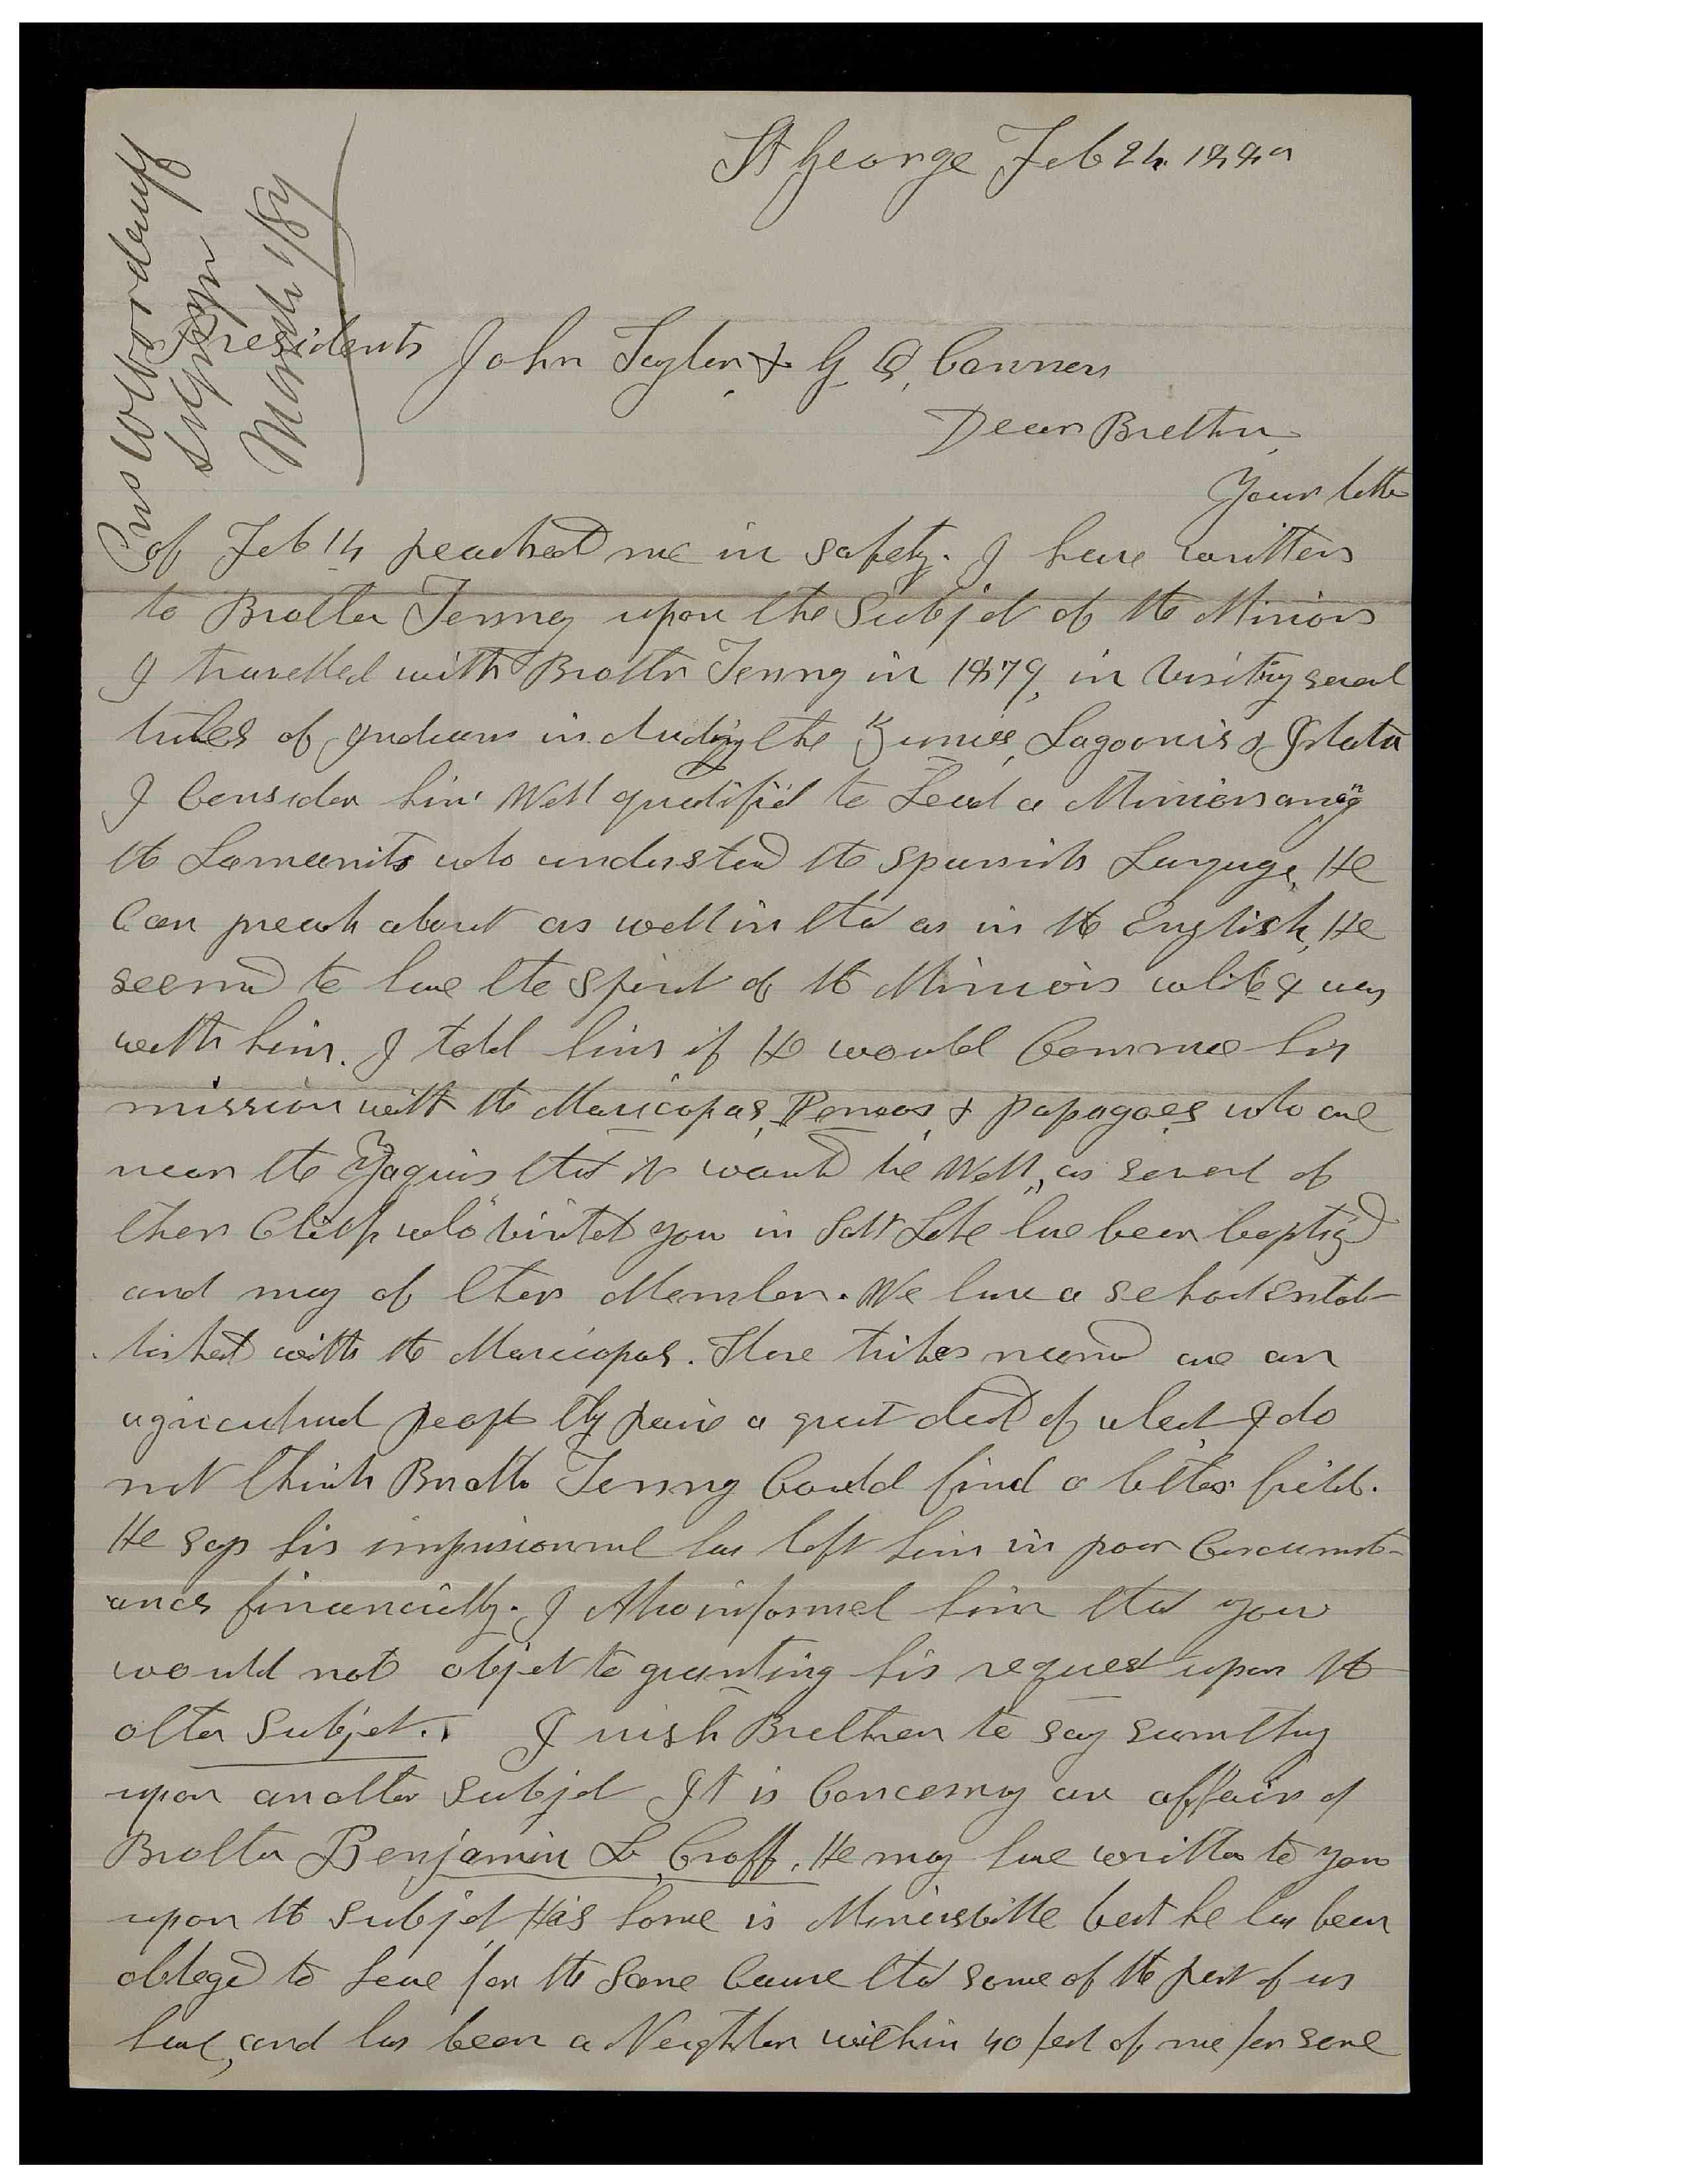 St George Feb 24. 188
Pres W Woodruff
March 1/89
Presidents John Taylor & G. Q. Cannon
Dear Brethren,
Your letter
of Feb 14 reached me in safety. I have written
to Brother Tenney upon the Subject of the Mission
I travelled with Brother Tenney in 1879, in visiting several
tribes of Indians including the Zunies, Lagoonis & Islata
I Consider him Well qualified to Lead a Mission among
the Lamanits who understand the Spanish Language, He
Can preach about as well in that as in the English, He
seemed to have the Spirit of the Mission while I was
with him. I told him if He would Commence his
mission with the Maricopas, Pemos, & papagoes who are
near the Yaquis that it would be Well, as several of
their Chiefs who visited you in Salt Lake have been baptized
and many of their Members. We have a school estab-
lished with the Maricopas. These tribes named are an
agricultural people they raise a great deal of wheat I do
not think Brother Tenney Could find a better field.
He says his imprisonment has left him in poor Circumst-
ances financially. I Also informed him that you
would not object to granting his request upon the
other Subject. I wish Brethren to say sumthing
upon another Subject It is Concerning an affair of
Brother Benjamin L, Croff. He may have written to you
upon the Subject, His home is Minersville but he has been
obleged to leave for the Same Cause that some of the rest of us
have, and has been a Neighbor within 40 feet of me for some